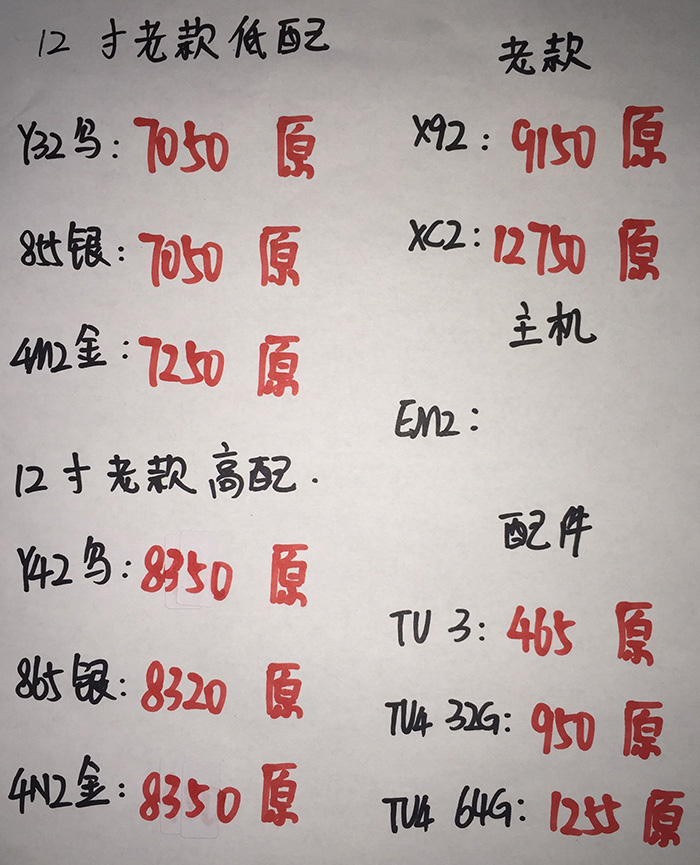 12寸老款低配
Y32乌：7050 原
855银：7050 原
4M2金：7250 原
12寸老款高配.
Y42乌：8350 原
865银：8320 原
4N2金：8350 原
老款
X92：9150 原
XC2：12750 原
主机
EM2：
配件
TU 3：465 原
TU4 32G：950 原
TU4 64G：1255 原